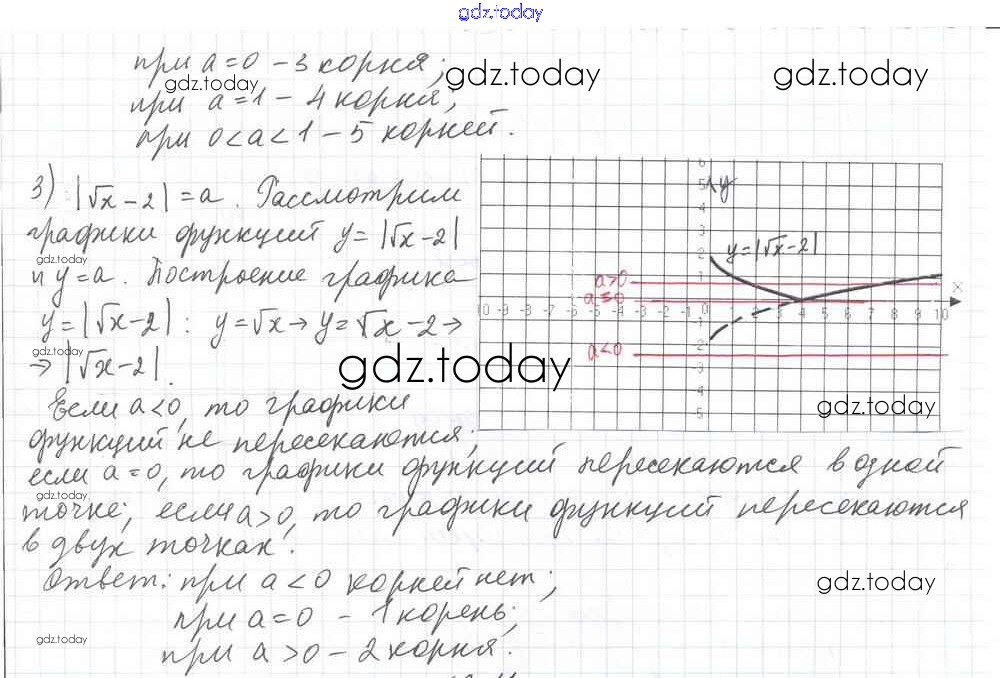 gdz.today
при a=0 – 3 корня;
gdz.today gdz.today gdz.today
при a=1 – 4 корня;
при 0<a<1 – 5 корней.
3) |√x–2|=a. Рассмотрим
графики функций y=|√x–2|
gdz.today
и y=a. Построение графика
y=|√x–2|: y=√x→y=√x–2→
gdz.today
→|√x–2|.
gdz.today
6
5 y
4
3
2
y=|√x–2|
a>0
a=0
x
10 -9 -8 -7 -6 -5 -4 -3 -2 -1 0 1 2 3 4 5 6 7 8 9 10
-2
a<0
-3
-4
-5
gdz.today
Если a<0, то графики
функций не пересекаются;
если a=0, то графики функций пересекаются в одной
gdz.today
точке; если a>0, то графики функций пересекаются
в двух точках.
Ответ: при a<0 корней нет;
gdz.today
при a=0 – 1 корень;
gdz.today
при a>0 – 2 корня.